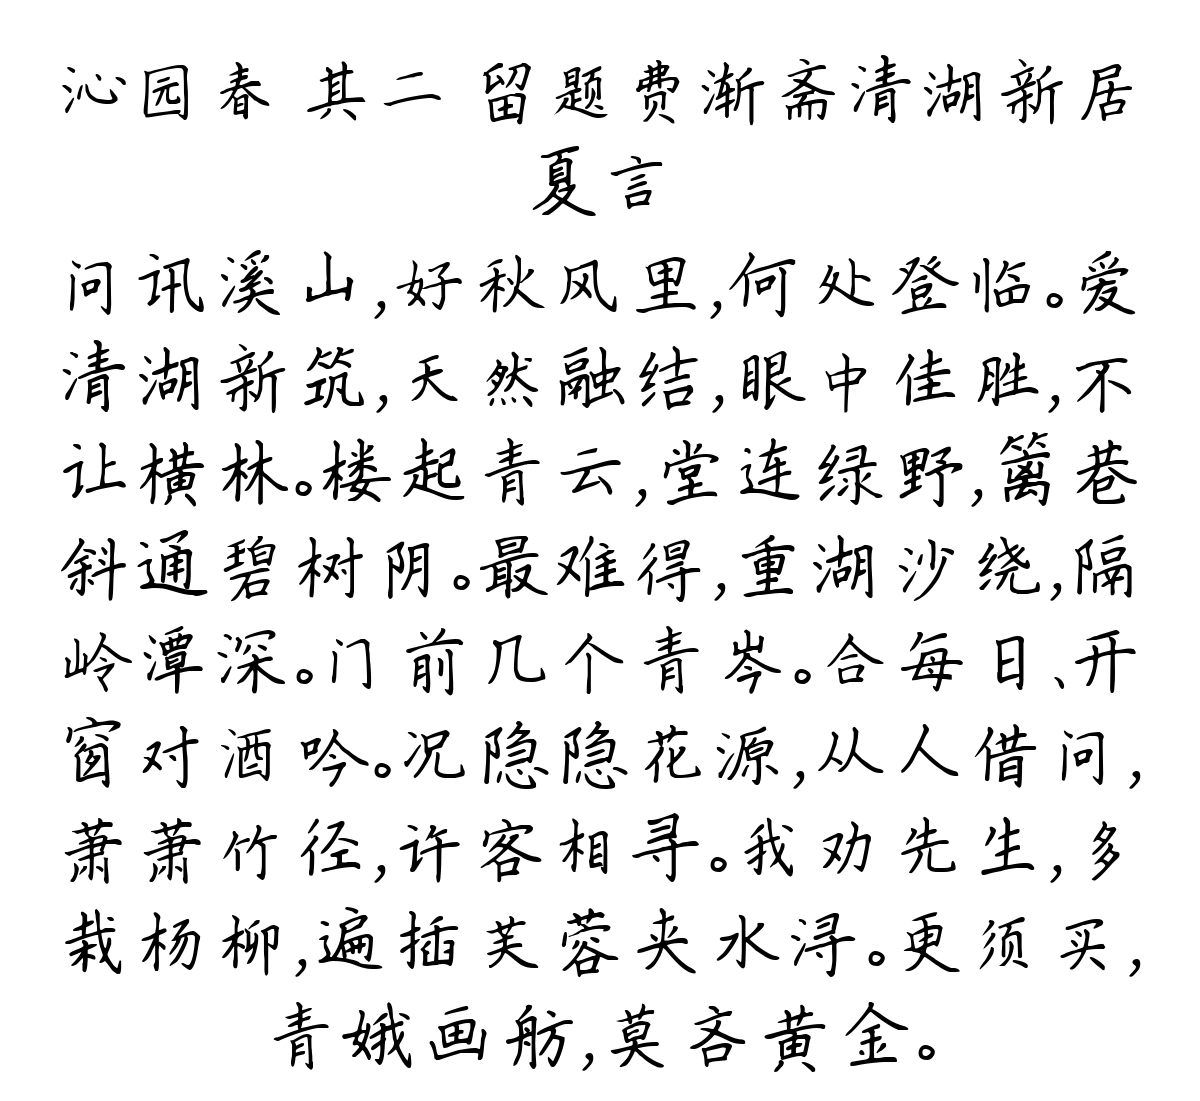 沁园春 其二 留题费渐斋清湖新居
夏言
问讯溪山,好秋风里,何处登临。爱
清湖新筑,天然融结,眼中佳胜,不
让横林。楼起青云,堂连绿野,篱巷
斜通碧树阴。最难得,重湖沙绕,隔
岭潭深。门前几个青岑。合每日、开
窗对酒吟。况隐隐花源,从人借问,
萧萧竹径,许客相寻。我劝先生,多
栽杨柳,遍插芙蓉夹水浔。更须买,
青娥画舫,莫吝黄金。